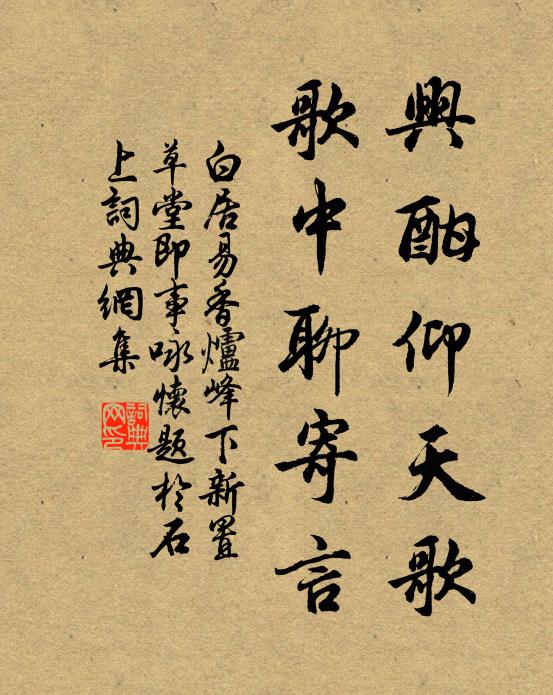 興酣仰天歌
歌中聊寄言
白居易香爐峰下新置
草堂即事咏懷題於石
上詞典網集
詞典
网印